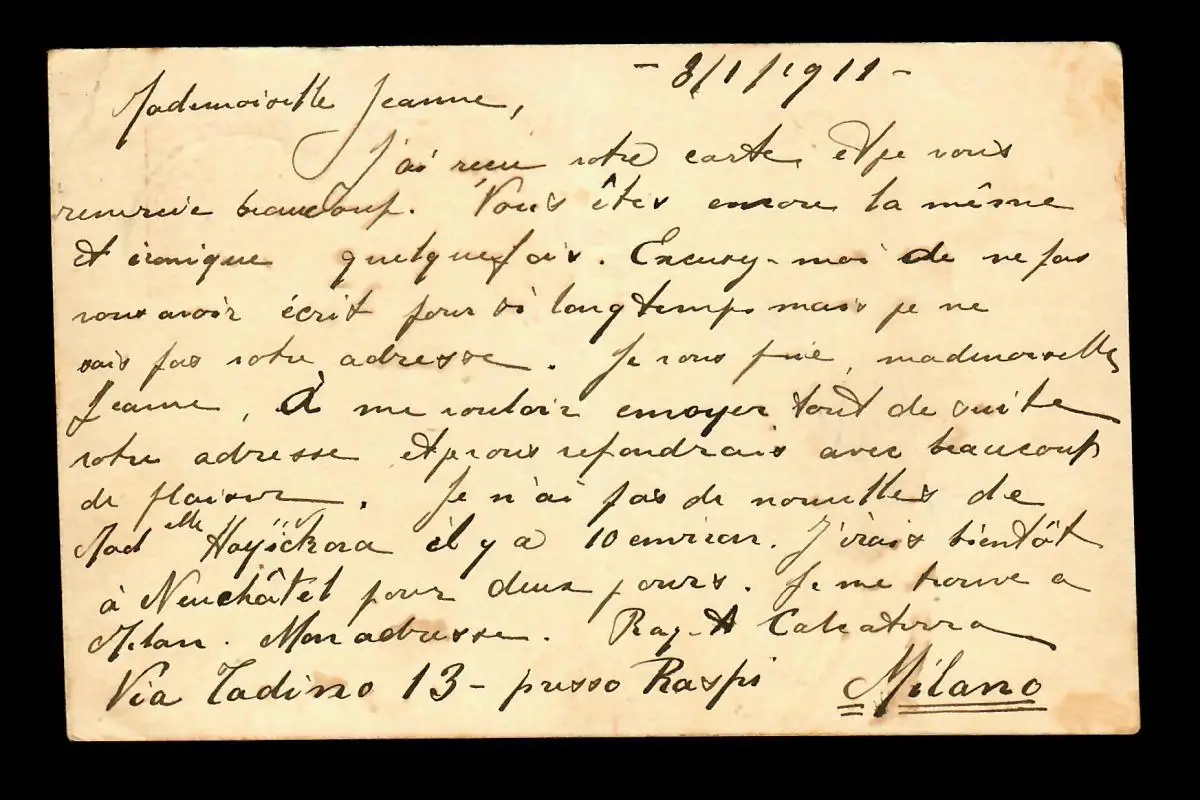 - 8/1/1911 -
Mademoiselle Jeanne,
J'ai reçu votre carte et je vous
remercie beaucoup. Vous êtes encore la même
et ironique quelquefois. Excusez-moi de ne pas
vous avoir écrit pour si longtemps mais je ne
sais pas votre adresse. Je vous prie, mademoiselle
Jeanne, à me vouloir envoyer tout de suite
votre adresse et je vous répondrais avec beaucoup
de plaisir. Je n'ai pas de nouvelles de
Mad elle il y a 10 environ. J'irais bientôt
à Neuchâtel pour deux jours. Je me trouve a
Milan. Mon adresse. Rag. A Calcaterra
Via Tadino 13 - presso Raspi Milano